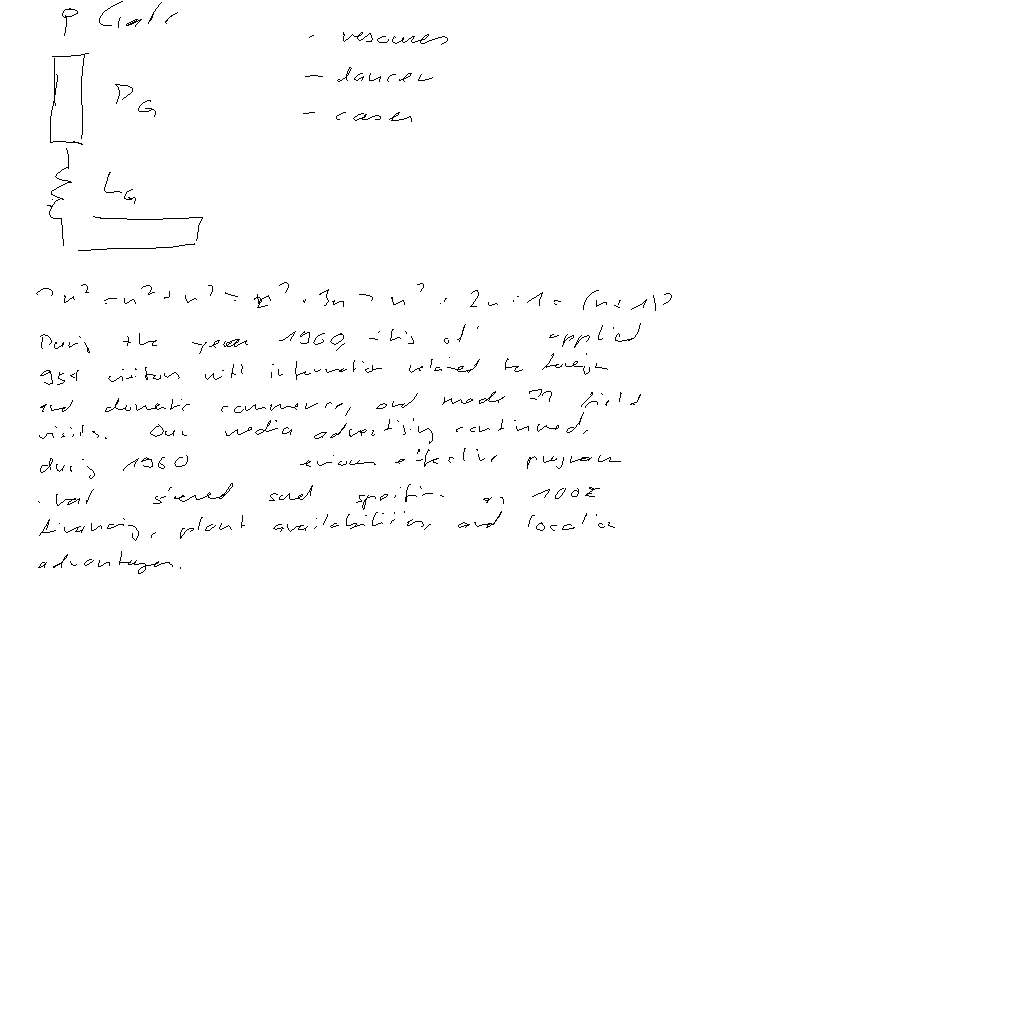 Gate
- rescuers
- dancer
- cases
R_G
L_G
n² = n² + n² = n² + 3n > n² + 2n + 1 = (n + 1)²
During the year 1960, this of applied
954 visitors with information related to foreign
and domestic commerce, and made 77 field
visits. Our media advertising continued,
during 1960 effective program
stressed such specific as 100%
financing, plant availabilities, and location
advantages.